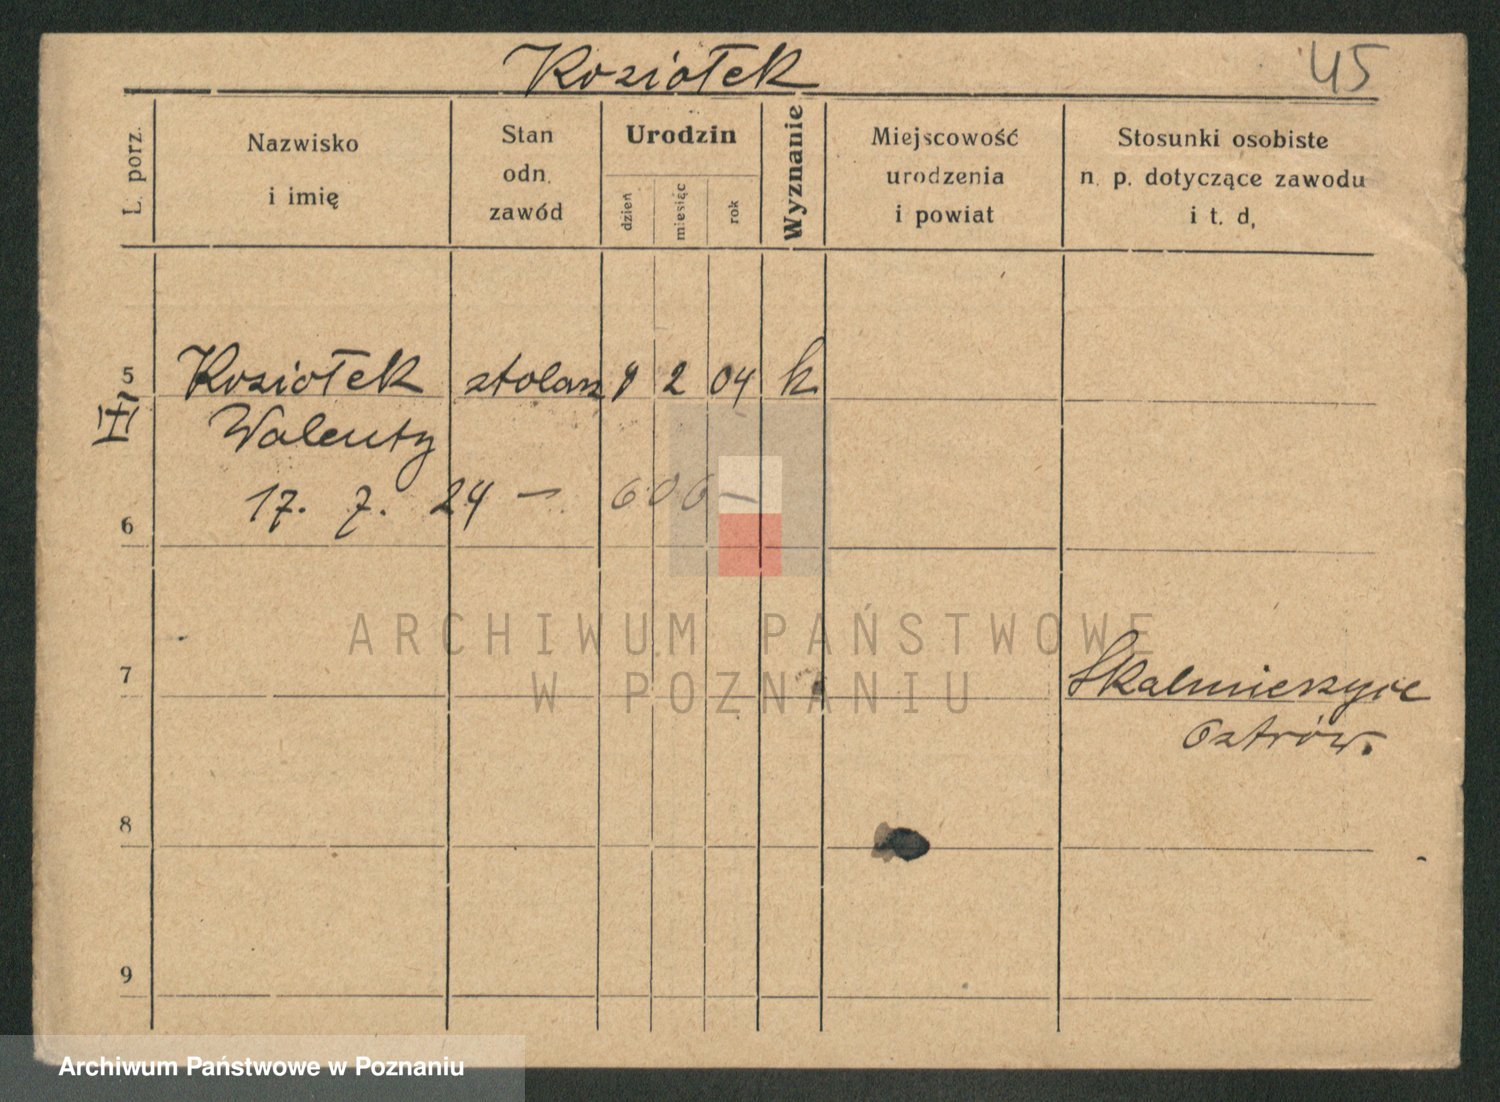 Koziołek 45
L. porz.
Nazwisko
i imię
Stan
odn.
zawód
Urodzin
dzień
miesiąc
rok
Wyznanie
Miejscowość
urodzenia
i powiat
Stosunki osobiste
n. p. dotyczące zawodu
i t. d,
5 Koziołek stolarz 9 2 04 k
III Walenty
17. 7. 24 – 606 –
6
ARCHIWUM PAŃSTWOWE
W POZNANIU
7 Skalmierzyce
Ostrów.
8
9
Archiwum Państwowe w Poznaniu